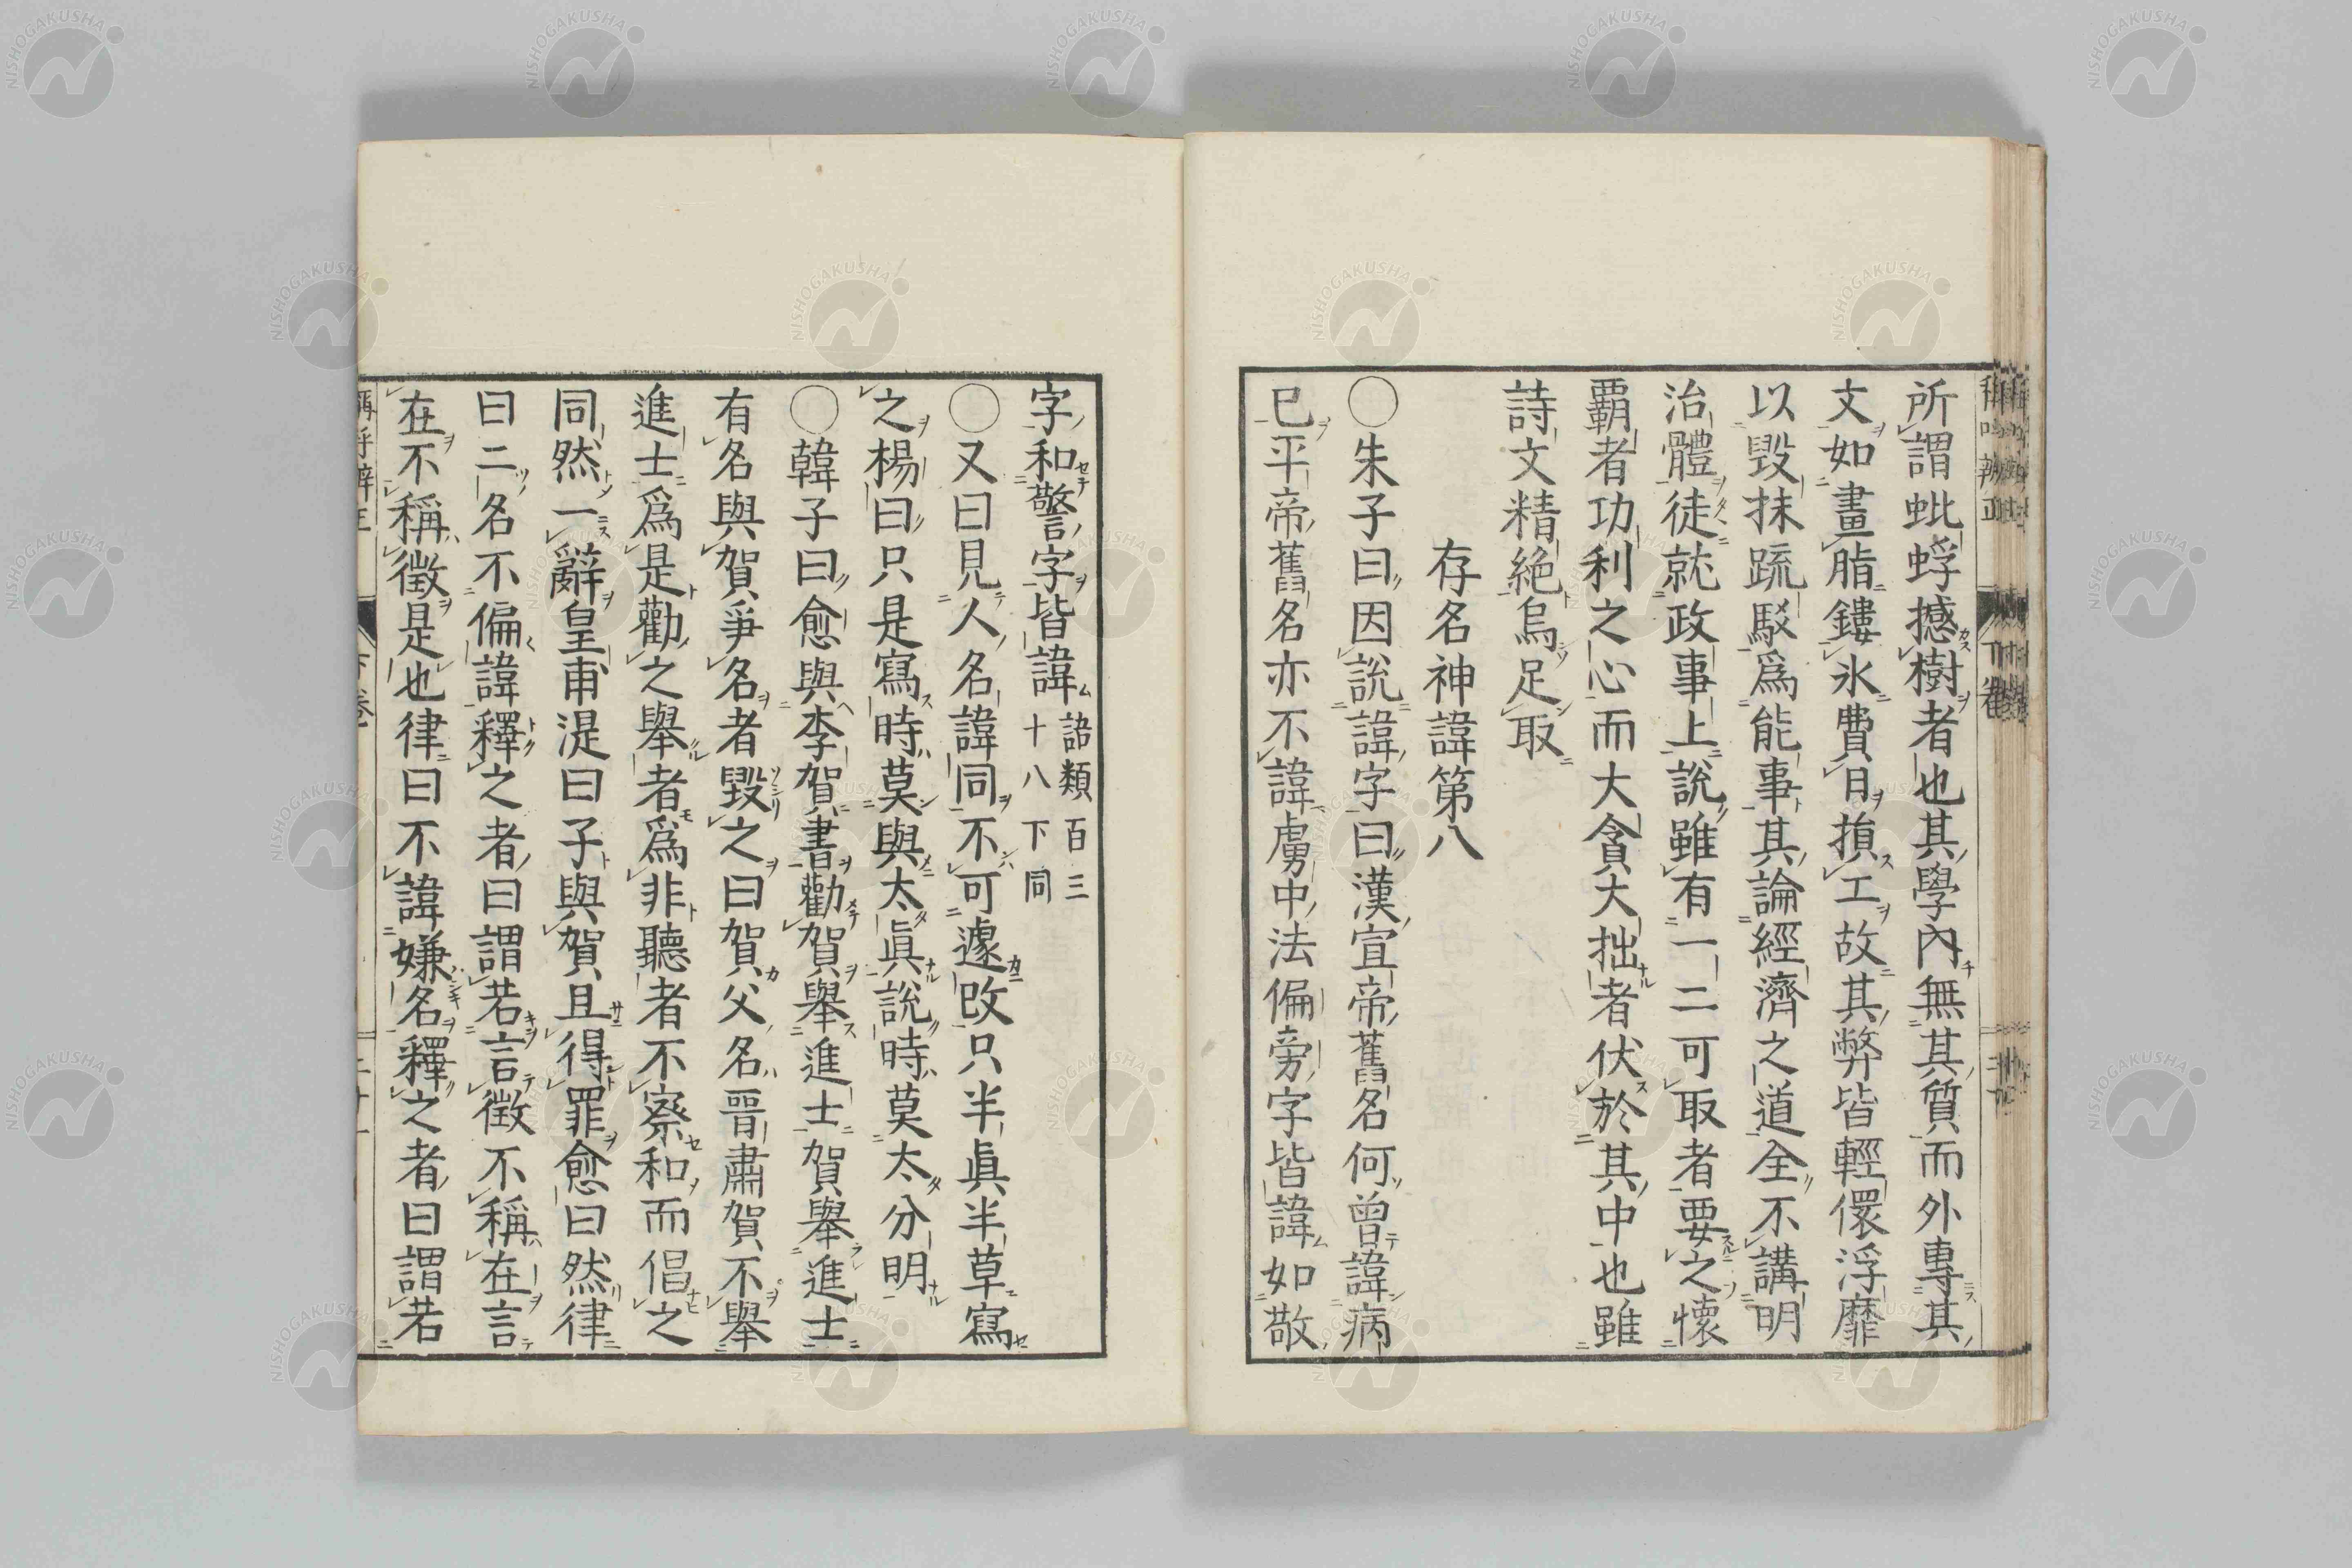 所謂蚍蜉撼樹者也其學內無其質而外專其
文如畫脂鏤氷費日損工故其弊皆輕儇浮靡
以毀抹疏駁爲能事其論經濟之道全不講明
治體徒就政事上說雖有一二可取者要之懷
覇者功利之心而大貪大拙者伏於其中也雖
詩文精絕烏足取
存名神諱第八
〇朱子曰因說諱字曰漢宣帝舊名何曾諱病
巳平帝舊名亦不諱虜中法偏旁字皆諱如敬
字和警字皆諱語類百三十八下同
〇又曰見人名諱同不可遽改只半眞半草寫
之楊曰只是寫時莫與太眞說時莫太分明
〇韓子曰愈與李賀書勸賀舉進士賀舉進士
有名與賀爭名者毀之曰賀父名晉肅賀不舉
進士爲是勸之舉者爲非聽者不察和而倡之
同然一辭皇甫湜曰子與賀且得罪愈曰然律
曰二名不偏諱釋之者曰謂若言徵不稱在言
在不稱徵是也律曰不諱嫌名釋之者曰謂若
NISHOGAKUSHA